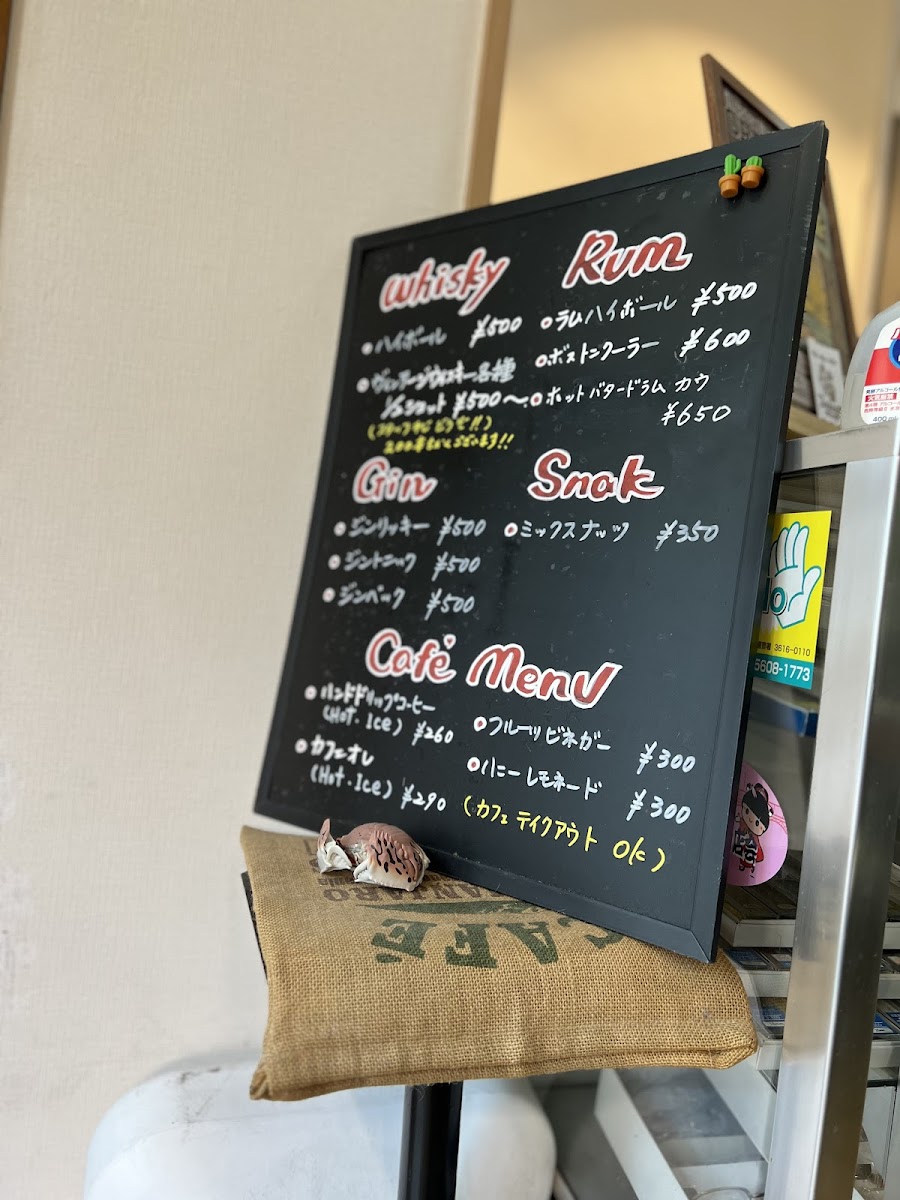 Whisky
・ハイボール ¥500
・ヴィンテージウイスキー各種
1/2ショット ¥500〜
Rum
・ラムハイボール ¥500
・ボストンクーラー ¥600
・ホットバタードラム カウ
¥650
Gin
・ジンリッキー ¥500
・ジントニック ¥500
・ジンバック ¥500
Snak
・ミックスナッツ ¥350
Café Menu
・ハンドドリップコーヒー
(Hot・Ice) ¥260
・カフェオレ
(Hot・Ice) ¥290
・フルーツビネガー ¥300
・ハニーレモネード ¥300
(カフェ テイクアウト OK)
CAFE
3616-0110
5608-1773
火気厳禁
400